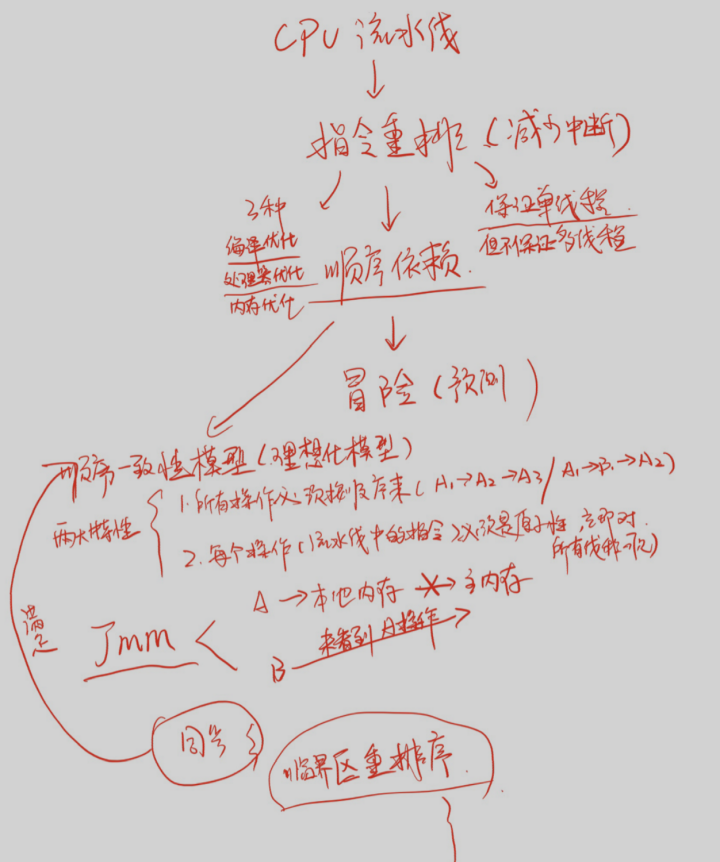 CPU 流水线
指令重排 (减少中断)
3种
编译优化
处理器优化
内存优化
顺序依赖
保证单线程
但不保证多线程
冒险 (预测)
顺序一致性模型 (理想化模型)
两大特性
1. 所有操作必须按顺序来 (A1→A2→A3 / A1→B1→A2)
2. 每个操作 (流水线中的指令) 必须是原子性, 立即对
所有线程可见)
满足
Jmm
A → 本地内存 → 主内存
B 未看到 A操作
同步
临界区重排序